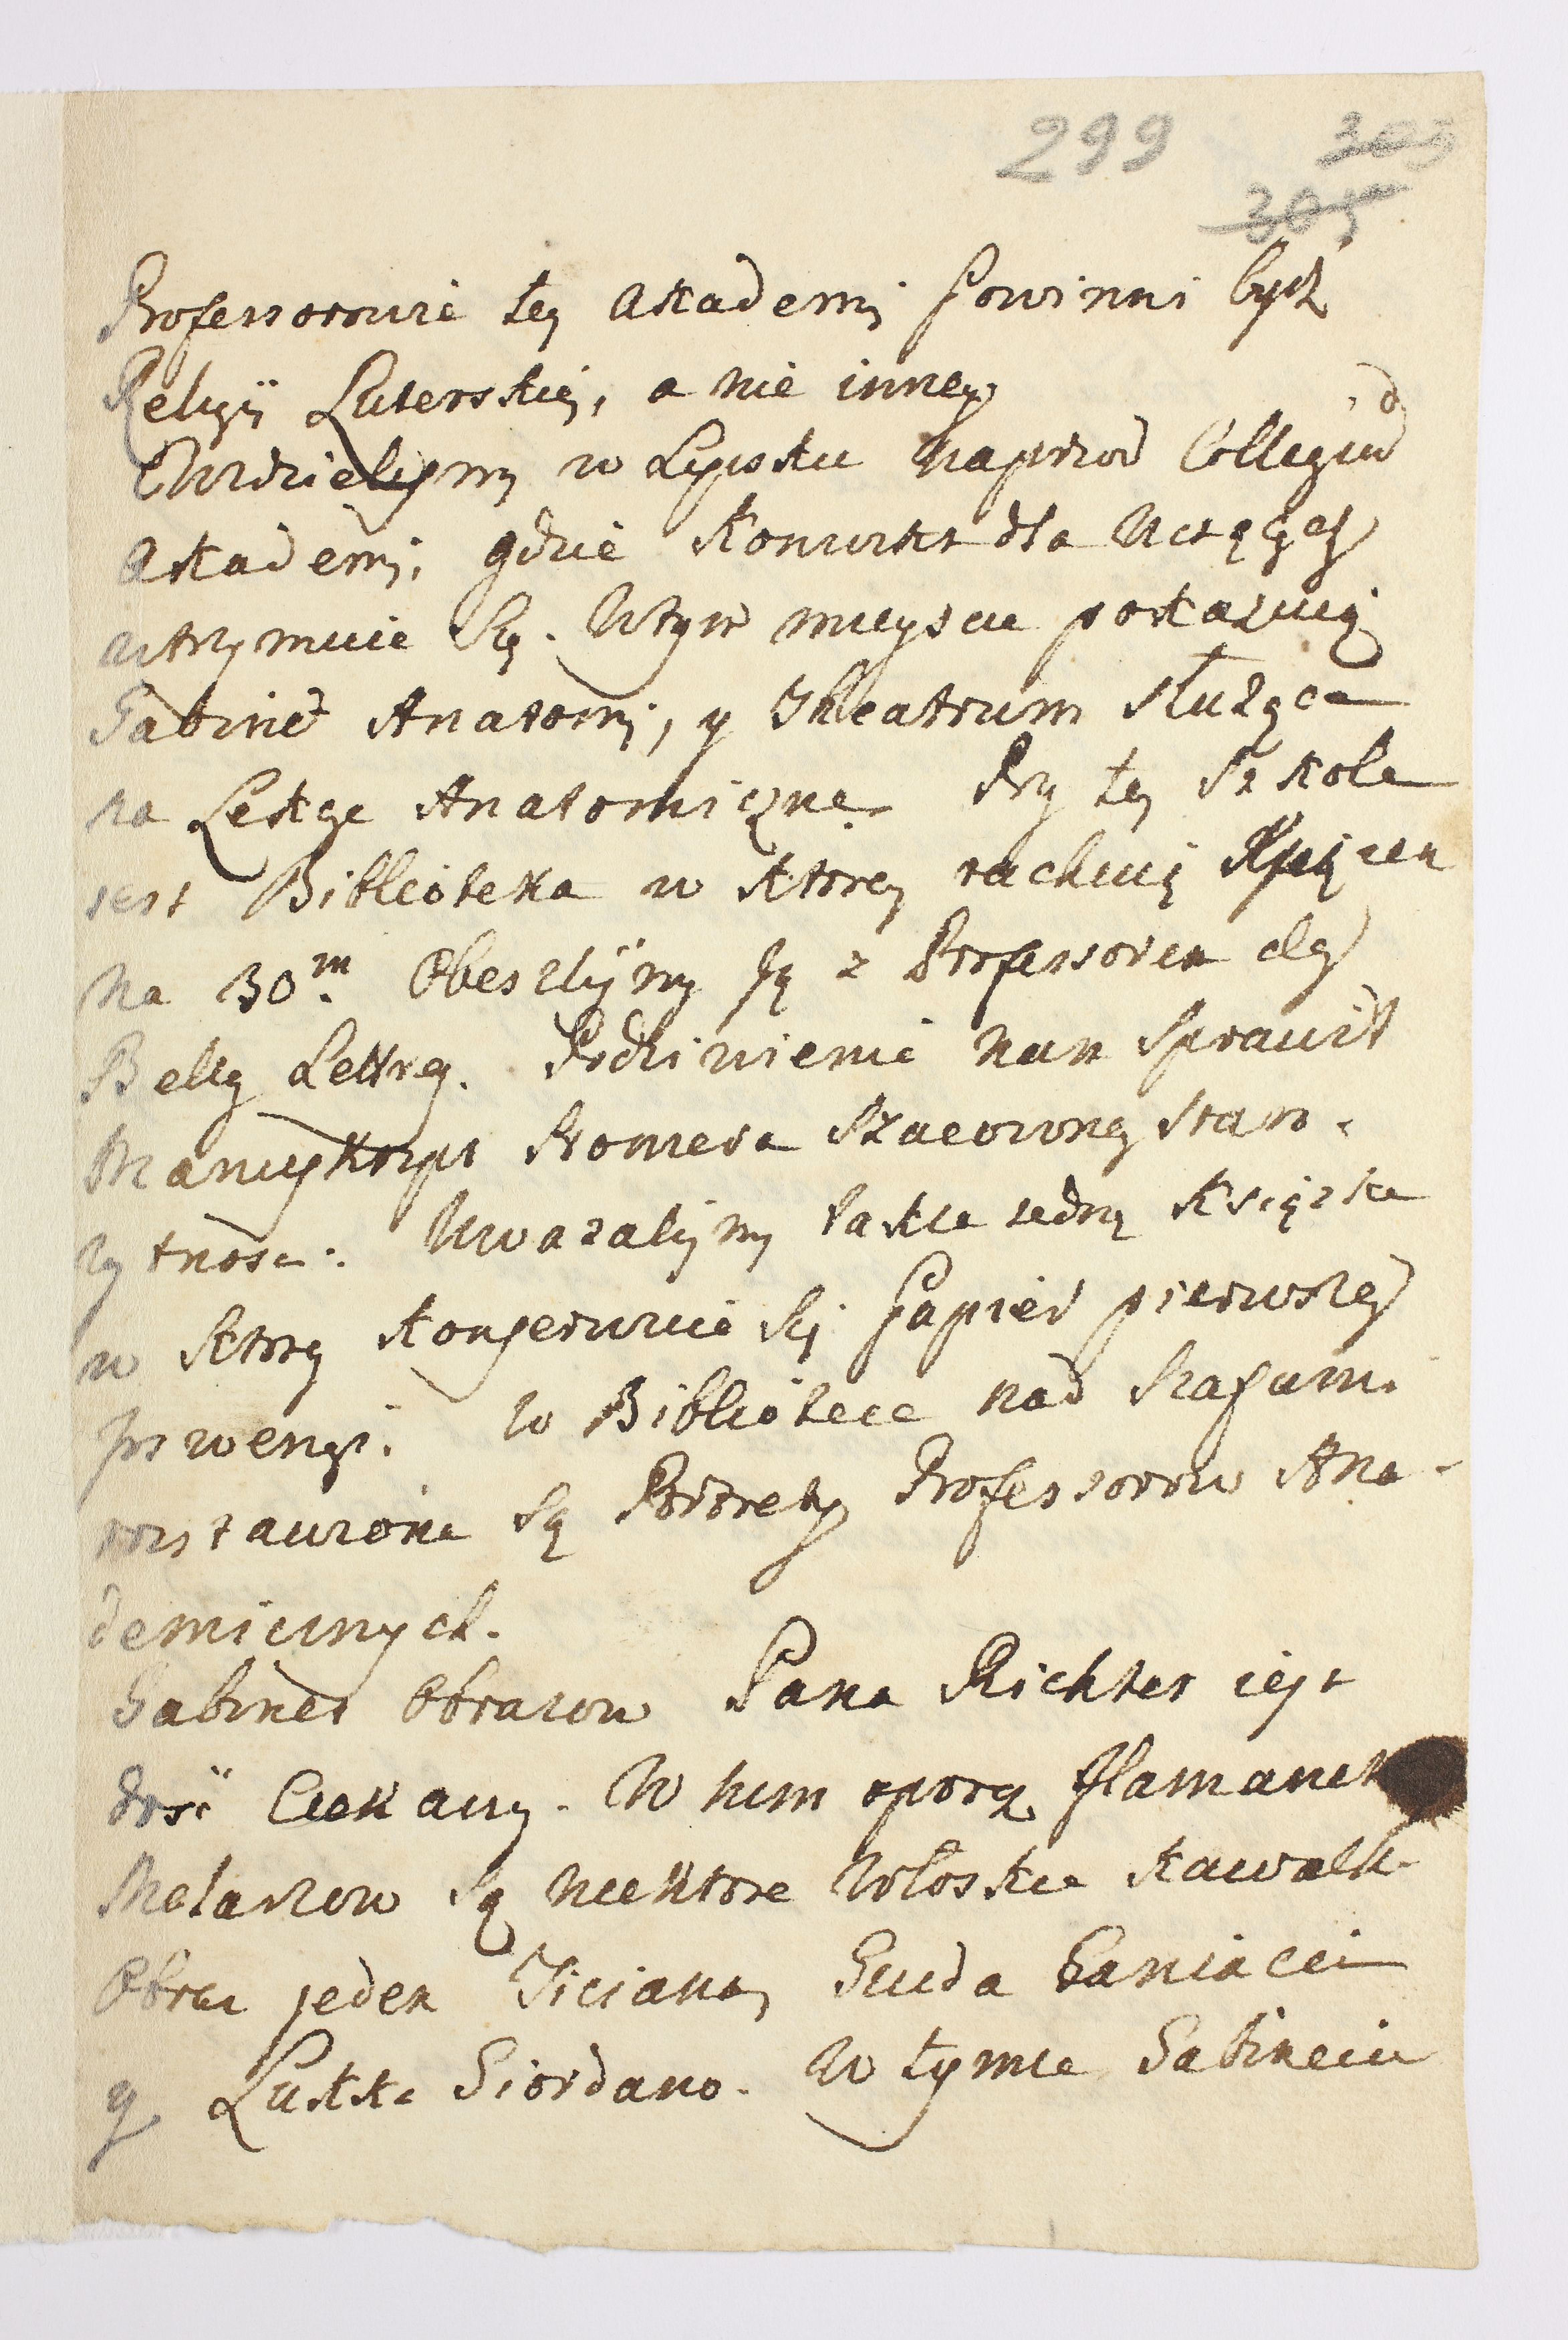 299 309
305
Professorowie tey Akademi powinni bydź
Religii Luterskiey, a nie inney
Widzielismy w Lipsku naprzod Collegiu
Akademi, gdzie Konwikt dla uczących
utrzymuie się. W tym mieyscu pokazuią
Gabinet Anatomi, y Theatrum służące
na Lekcye Anatomiczne. Przy tey Szkole
iest Biblioteka w ktorey rachuią Xiążek
na 30m. Obeszlismy ią z Professorem des
Belles Lettres. Podziwienie nam sprawił
Manuskrypt Homera szacowney staro-
żytnosci. Uwazalismy także iedną Książkę
w ktorey konserwuie się papier pierwszey
inwencyi. W Bibliotece nad szafami
rozstawione są Portrety Professorow Aka-
demicznych.
Gabinet Obrazow Pana Richter iest
dość Ciekawy. W nim oprocz Flamanck
Malarzow są niektore Włoskie kawałki
Obraz jeden Ticiana, Guida Caniacei
y Lukka Giordano. W tymze Gabinecie